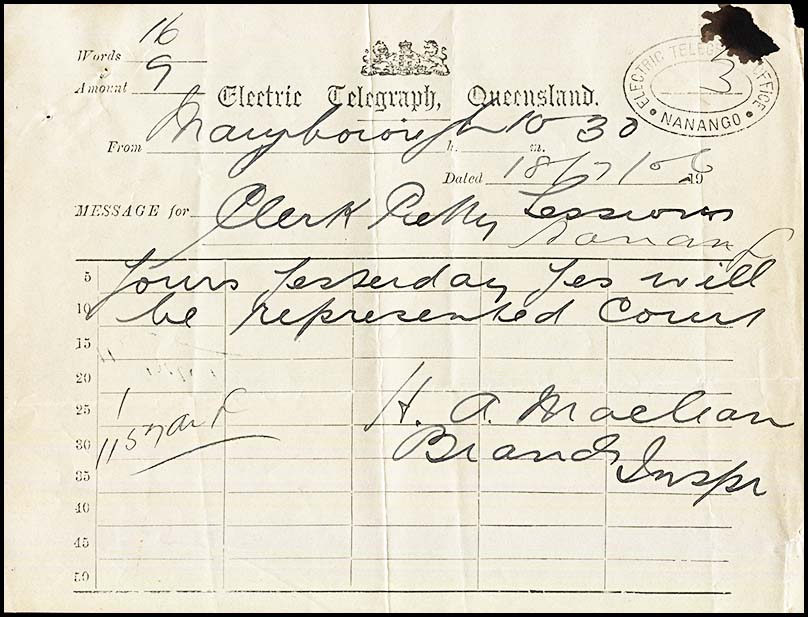 Words 16
Amount 9
ELECTRIC TELEGRAPH OFFICE
3
NANANGO
Electric Telegraph, Queensland.
From Maryborough 10 h. 30 m.
Dated 18/7/06 19
MESSAGE for Clerk Petty Sessions
Nanango
5 Yours Yesterday Yes will
10 be represented Court
15
20
25 H. A. Maclean
30 Brands Inspr
35
40
45
50